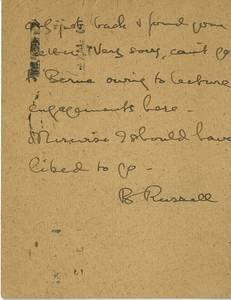 back & found your
letter. Very sorry, can't go
Berne owing to lecture
engagements here –
I should have
liked to go –
B Russell